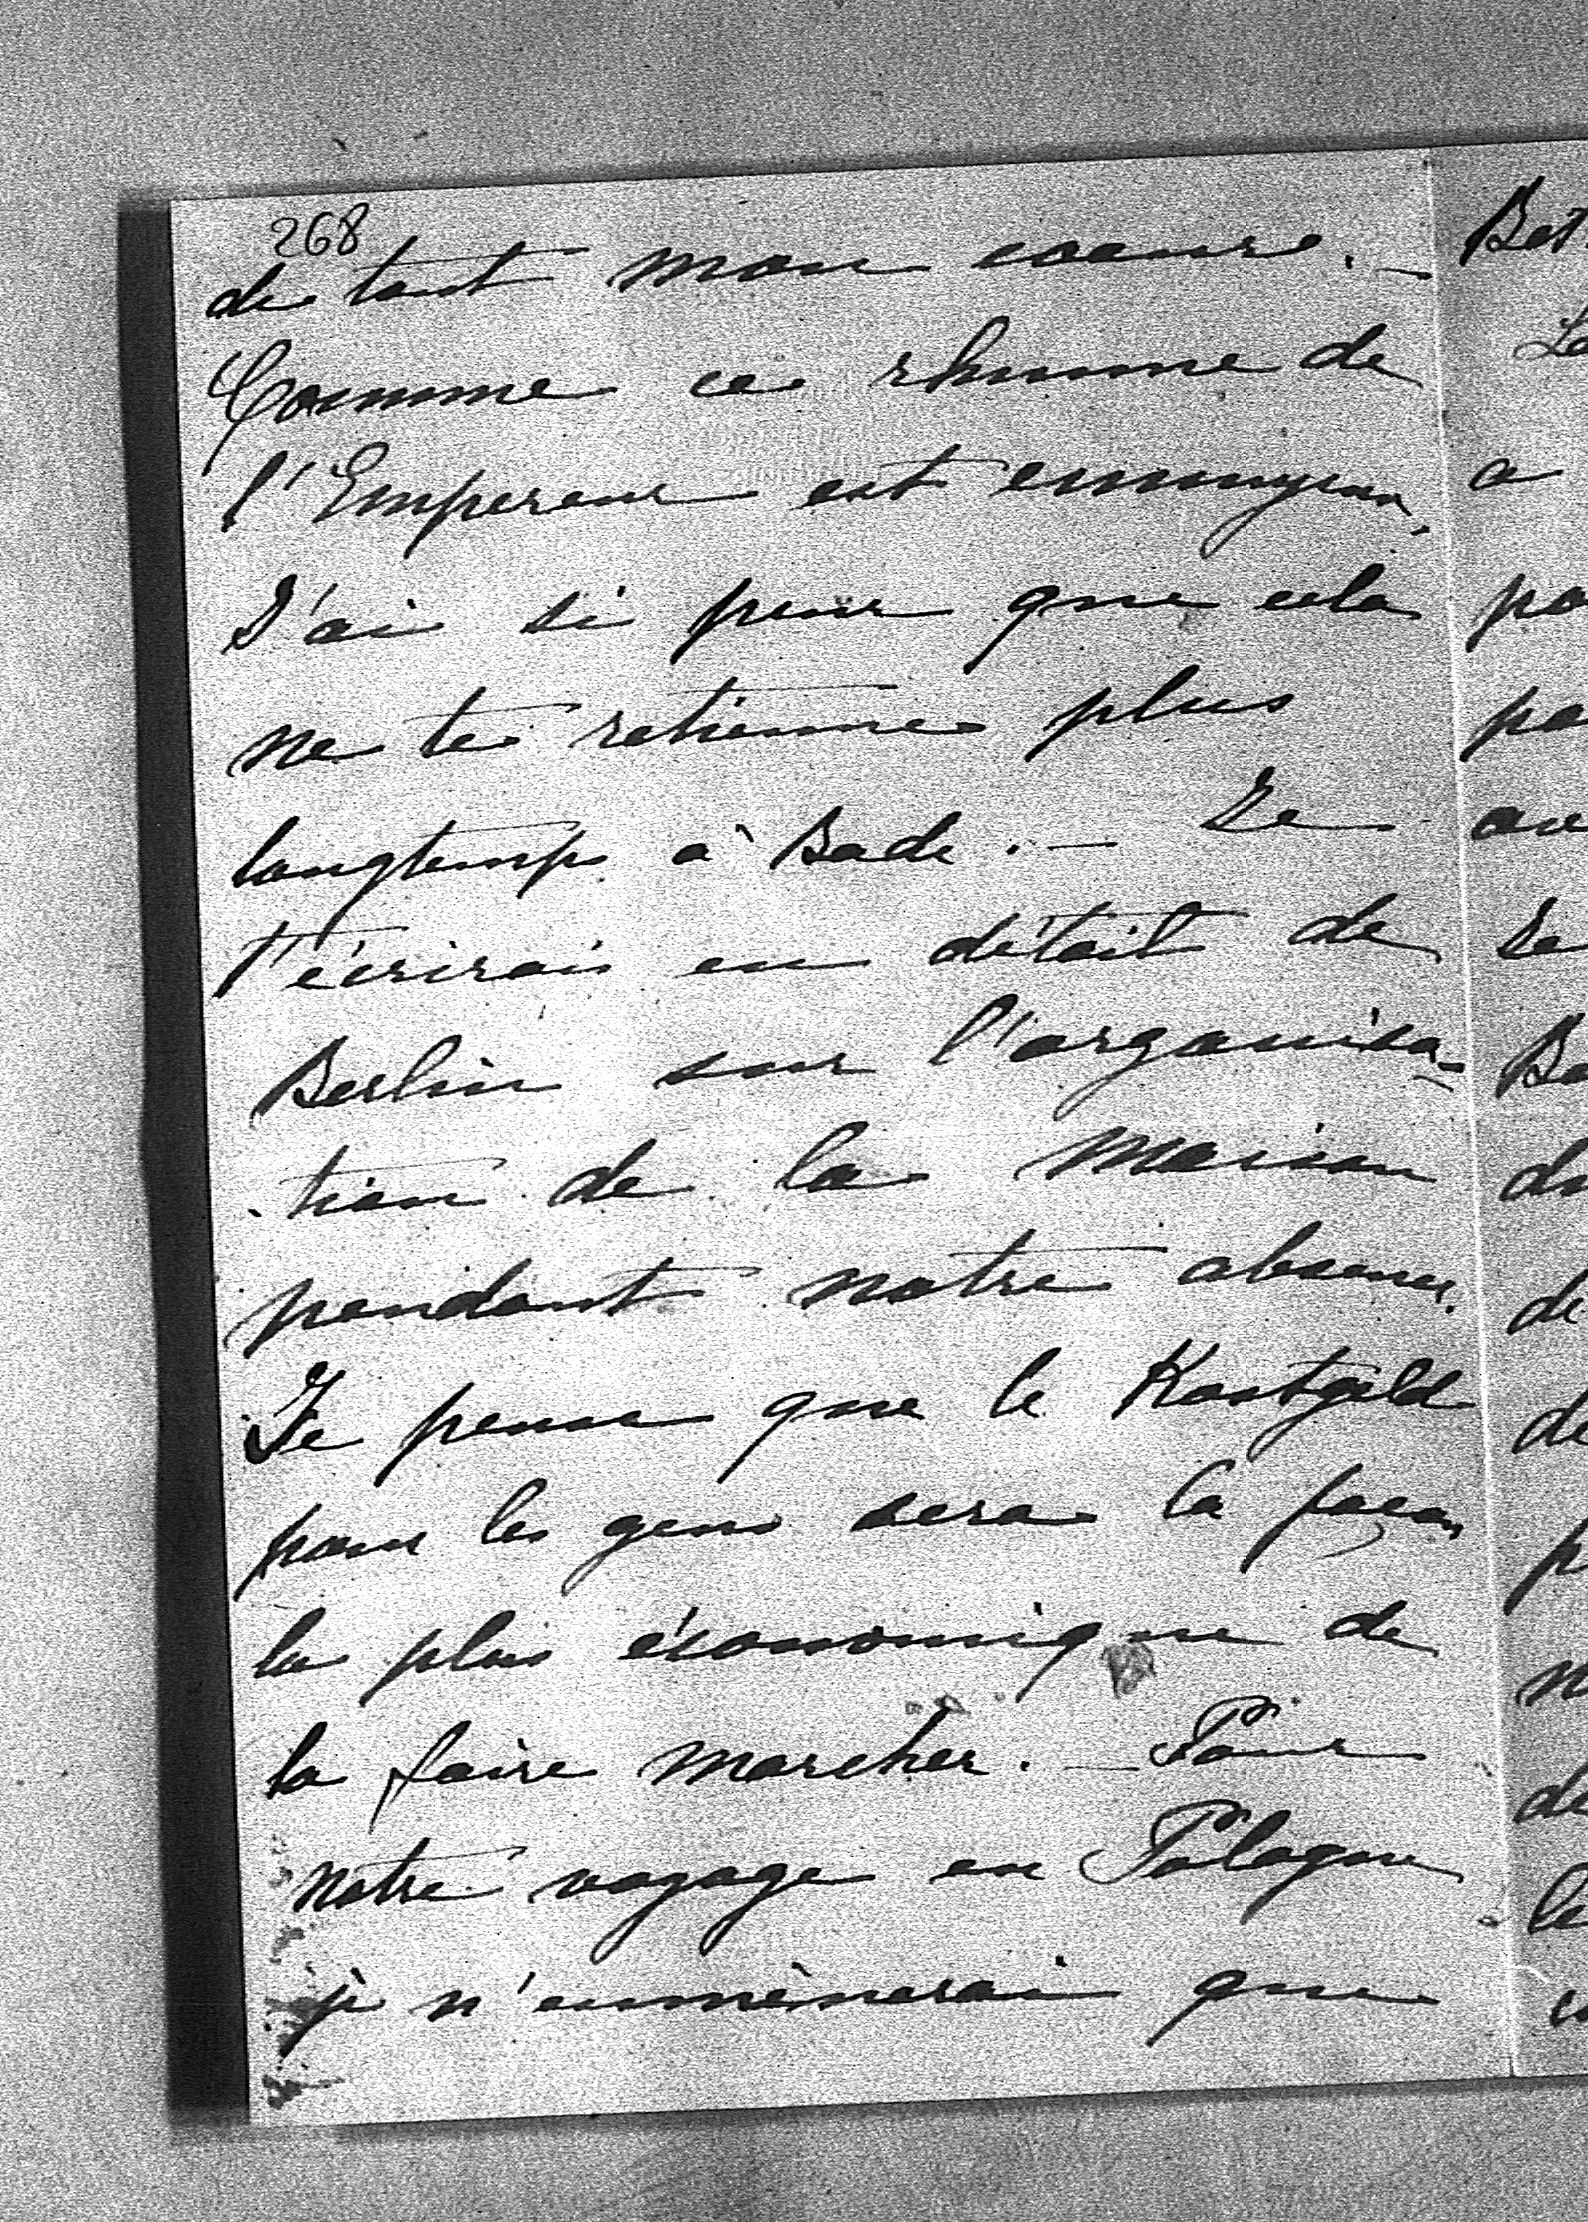 268
de tout mon coeur. –
Comme ce rhume de
l'Empereur est ennuyeux,
J'ai si peur que cela
ne te retienne plus
longtemps à Bade. – Je
t'écrirais en détail de
Berlin sur l'organisa-
tion de la maison
pendant notre absence.
Je pense que le Kostgeld
pour les gens sera la façon
la plus économique de
la faire marcher. – Pour
notre voyage en Pologne
je n'emmènerai que